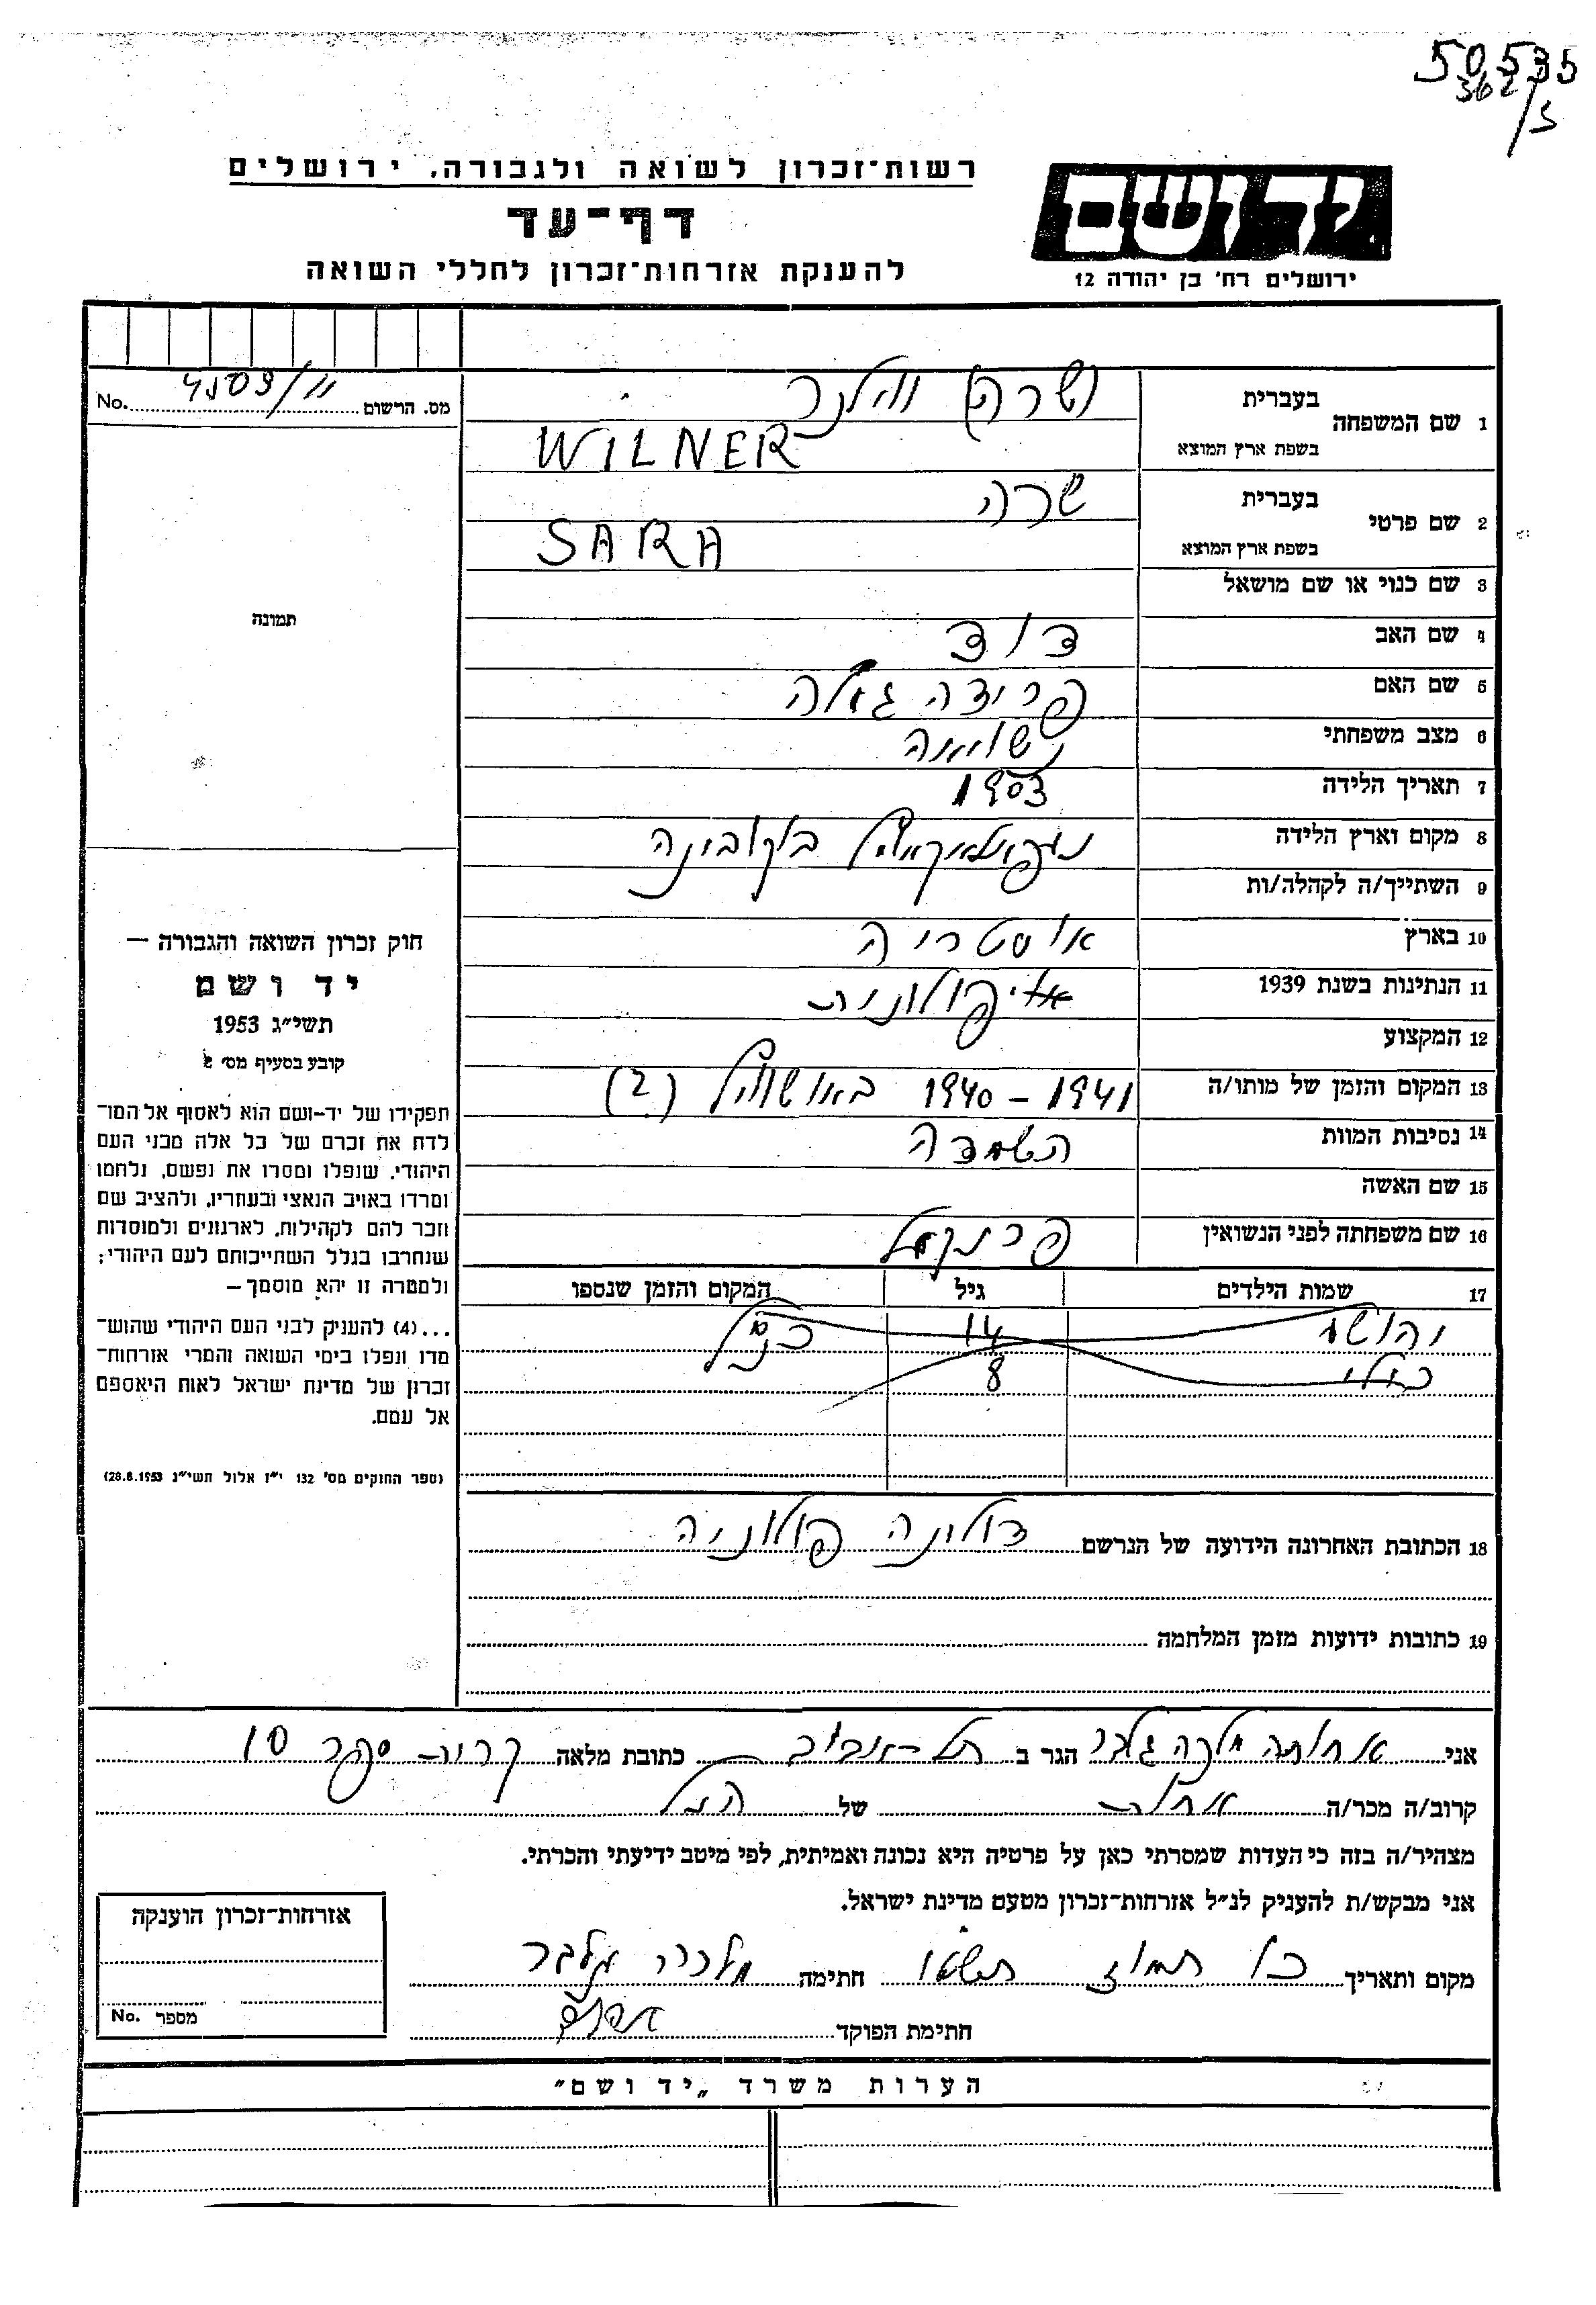 50535
362/5
רשות־זכרון לשואה ולגבורה, ירושלים
דף־עד
להענקת אזרחות־זכרון לחללי השואה
יד ושם
ירושלים רח' בן יהודה 12
מס. הרשום No.
1 שם המשפחה בעברית (שרה) ווילנר
בשפת ארץ המוצא WILNER
2 שם פרטי בעברית שרה
בשפת ארץ המוצא SARA
3 שם כנוי או שם מושאל
תמונה
4 שם האב דוד
5 שם האם פרידה
6 מצב משפחתי נשואה
7 תאריך הלידה 1903
8 מקום וארץ הלידה בוקובינה
9 השתייך/ה לקהלה/ות
10 בארץ אוסטריה
11 הנתינות בשנת 1939 פולונית
12 המקצוע
13 המקום והזמן של מותו/ה 1940 - 1941 באושוויץ (?)
14 נסיבות המוות השמדה
15 שם האשה
16 שם משפחתה לפני הנשואין פרנקל
17 שמות הילדים גיל המקום והזמן שנספו
יהושע 14 כנ"ל
8
18 הכתובת האחרונה הידועה של הנרשם דולינה פולוניה
19 כתובות ידועות מזמן המלחמה
חוק זכרון השואה והגבורה –
יד ושם
תשי"ג 1953
קובע בסעיף מס' 2
תפקידו של יד-ושם הוא לאסוף אל המו־
לדת את זכרם של כל אלה מבני העם
היהודי, שנפלו ומסרו את נפשם, נלחמו
ומרדו באויב הנאצי ובעוזריו, ולהציב שם
וזכר להם לקהילות, לארגונים ולמוסדות
שנחרבו בגלל השתייכותם לעם היהודי;
ולמטרה זו יהא מוסמך –
...(4) להעניק לבני העם היהודי שהוש־
מדו ונפלו בימי השואה והמרי אזרחות־
זכרון של מדינת ישראל לאות היאספם
אל עמם.
(ספר החוקים מס' 132 י"ז אלול תשי"ג 28.8.1953)
אני אחותה מלכה גלבר הגר ב תל-אביב כתובת מלאה קרית ספר 10
קרוב/ה מכר/ה אחות של הנ"ל
מצהיר/ה בזה כי העדות שמסרתי כאן על פרטיה היא נכונה ואמיתית, לפי מיטב ידיעתי והכרתי.
אני מבקש/ת להעניק לנ"ל אזרחות־זכרון מטעם מדינת ישראל.
מקום ותאריך כו תמוז תשטו חתימה מלכה גלבר
חתימת הפוקד
אזרחות־זכרון הוענקה
מספר No.
הערות משרד „יד ושם"